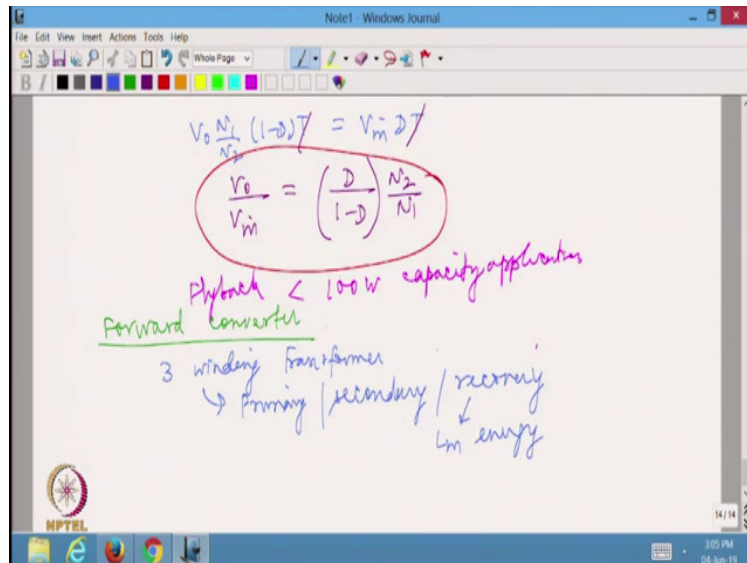 Note1 - Windows Journal
File Edit View Insert Actions Tools Help
Whole Page
B I
V₀ N₁/N₂ (1-D)T = Vin DT
V₀/Vin = (D/1-D) N₂/N₁
Flyback < 100W capacity applications
Forward converter
3 winding transformer
↳ Primary / secondary / recovery
Lm energy
NPTEL
14 / 14
3:05 PM
04-Jun-19